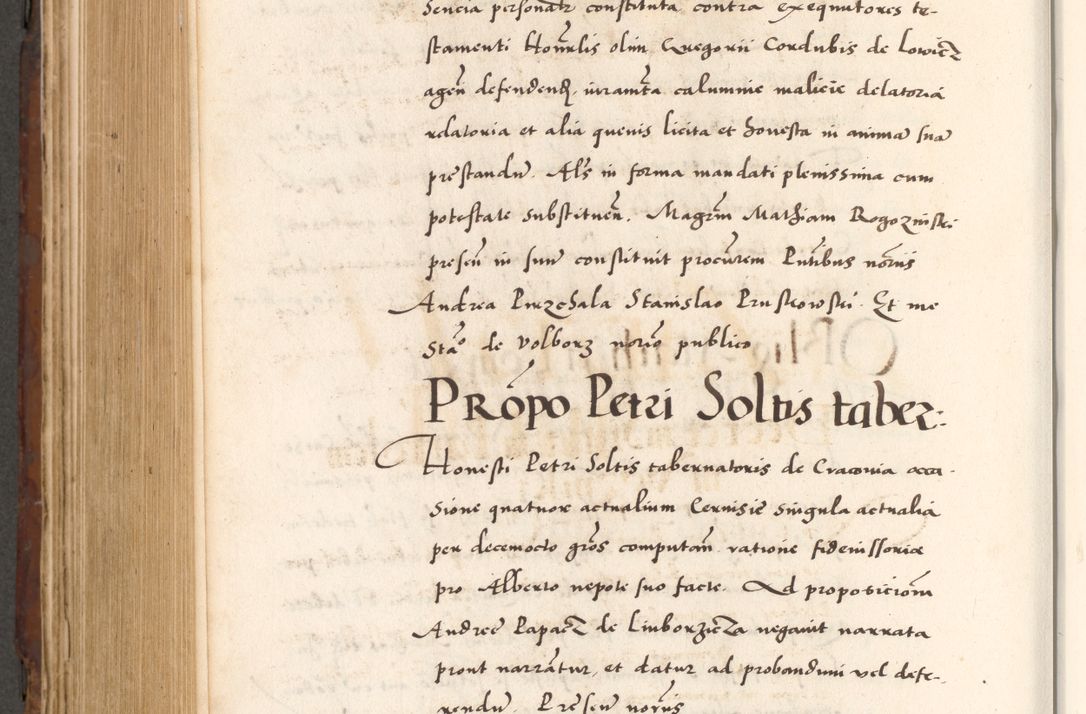 sencia personaliter constituta contra exequutores te-
stamenti Honrlis olim Gregorii Cordubis de Lowicz
agen defenden iuramta calumnie malicie delatoria
relatoria et alia quevis licita et honesta in anima sua
prestandu. Als in forma mandati plenissima cum
potestate substituen. Magrm Mathiam Rogozinski
presen in suu constituit procurem Pntibus noriis
Andrea Pirzchala Stanislao Pruskowski. Et me
Sta de Volborz norio publico
Propo Petri Soltis taber:
Honesti Petri Soltis tabernatoris de Cracovia occa-
sione quatuor actualium Cervisie singula actualia
per decemocto gros computan ratione fideiussoria
pro Alberto nepote suo facte. Ad proposicioni
Andree Papacz de Linborzicza negavit narrata
prout narrantur, et datur ad probandum vel defe-
rendu. Presen noriis